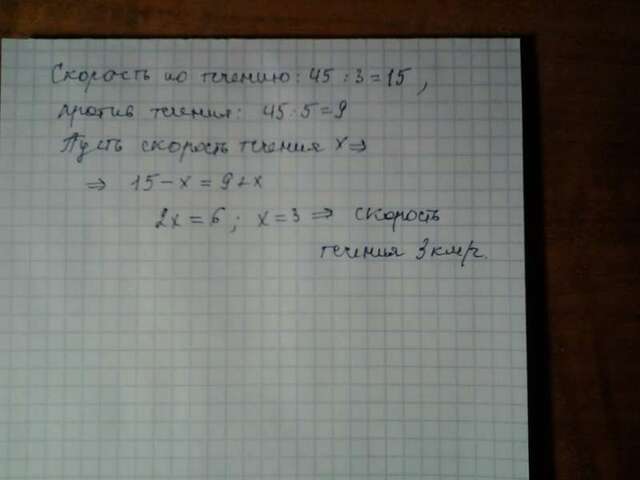 Скорость по течению: 45 : 3 = 15 ,
против течения: 45 : 5 = 9
Пусть скорость течения x ⇒
⇒ 15 - x = 9 + x
2x = 6 ; x = 3 ⇒ скорость
течения 3 км/ч.